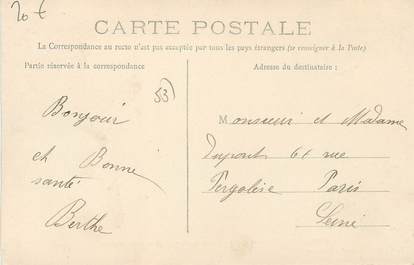 20 €
CARTE POSTALE
La Correspondance au recto n'est pas acceptée par tous les pays étrangers (se renseigner à la Poste)
Partie réservée à la correspondance
Adresse du destinataire :
53)
Bonjour
et Bonne
santé
Berthe
Monsieur et Madame
61 rue
Pergolèse Paris
Seine